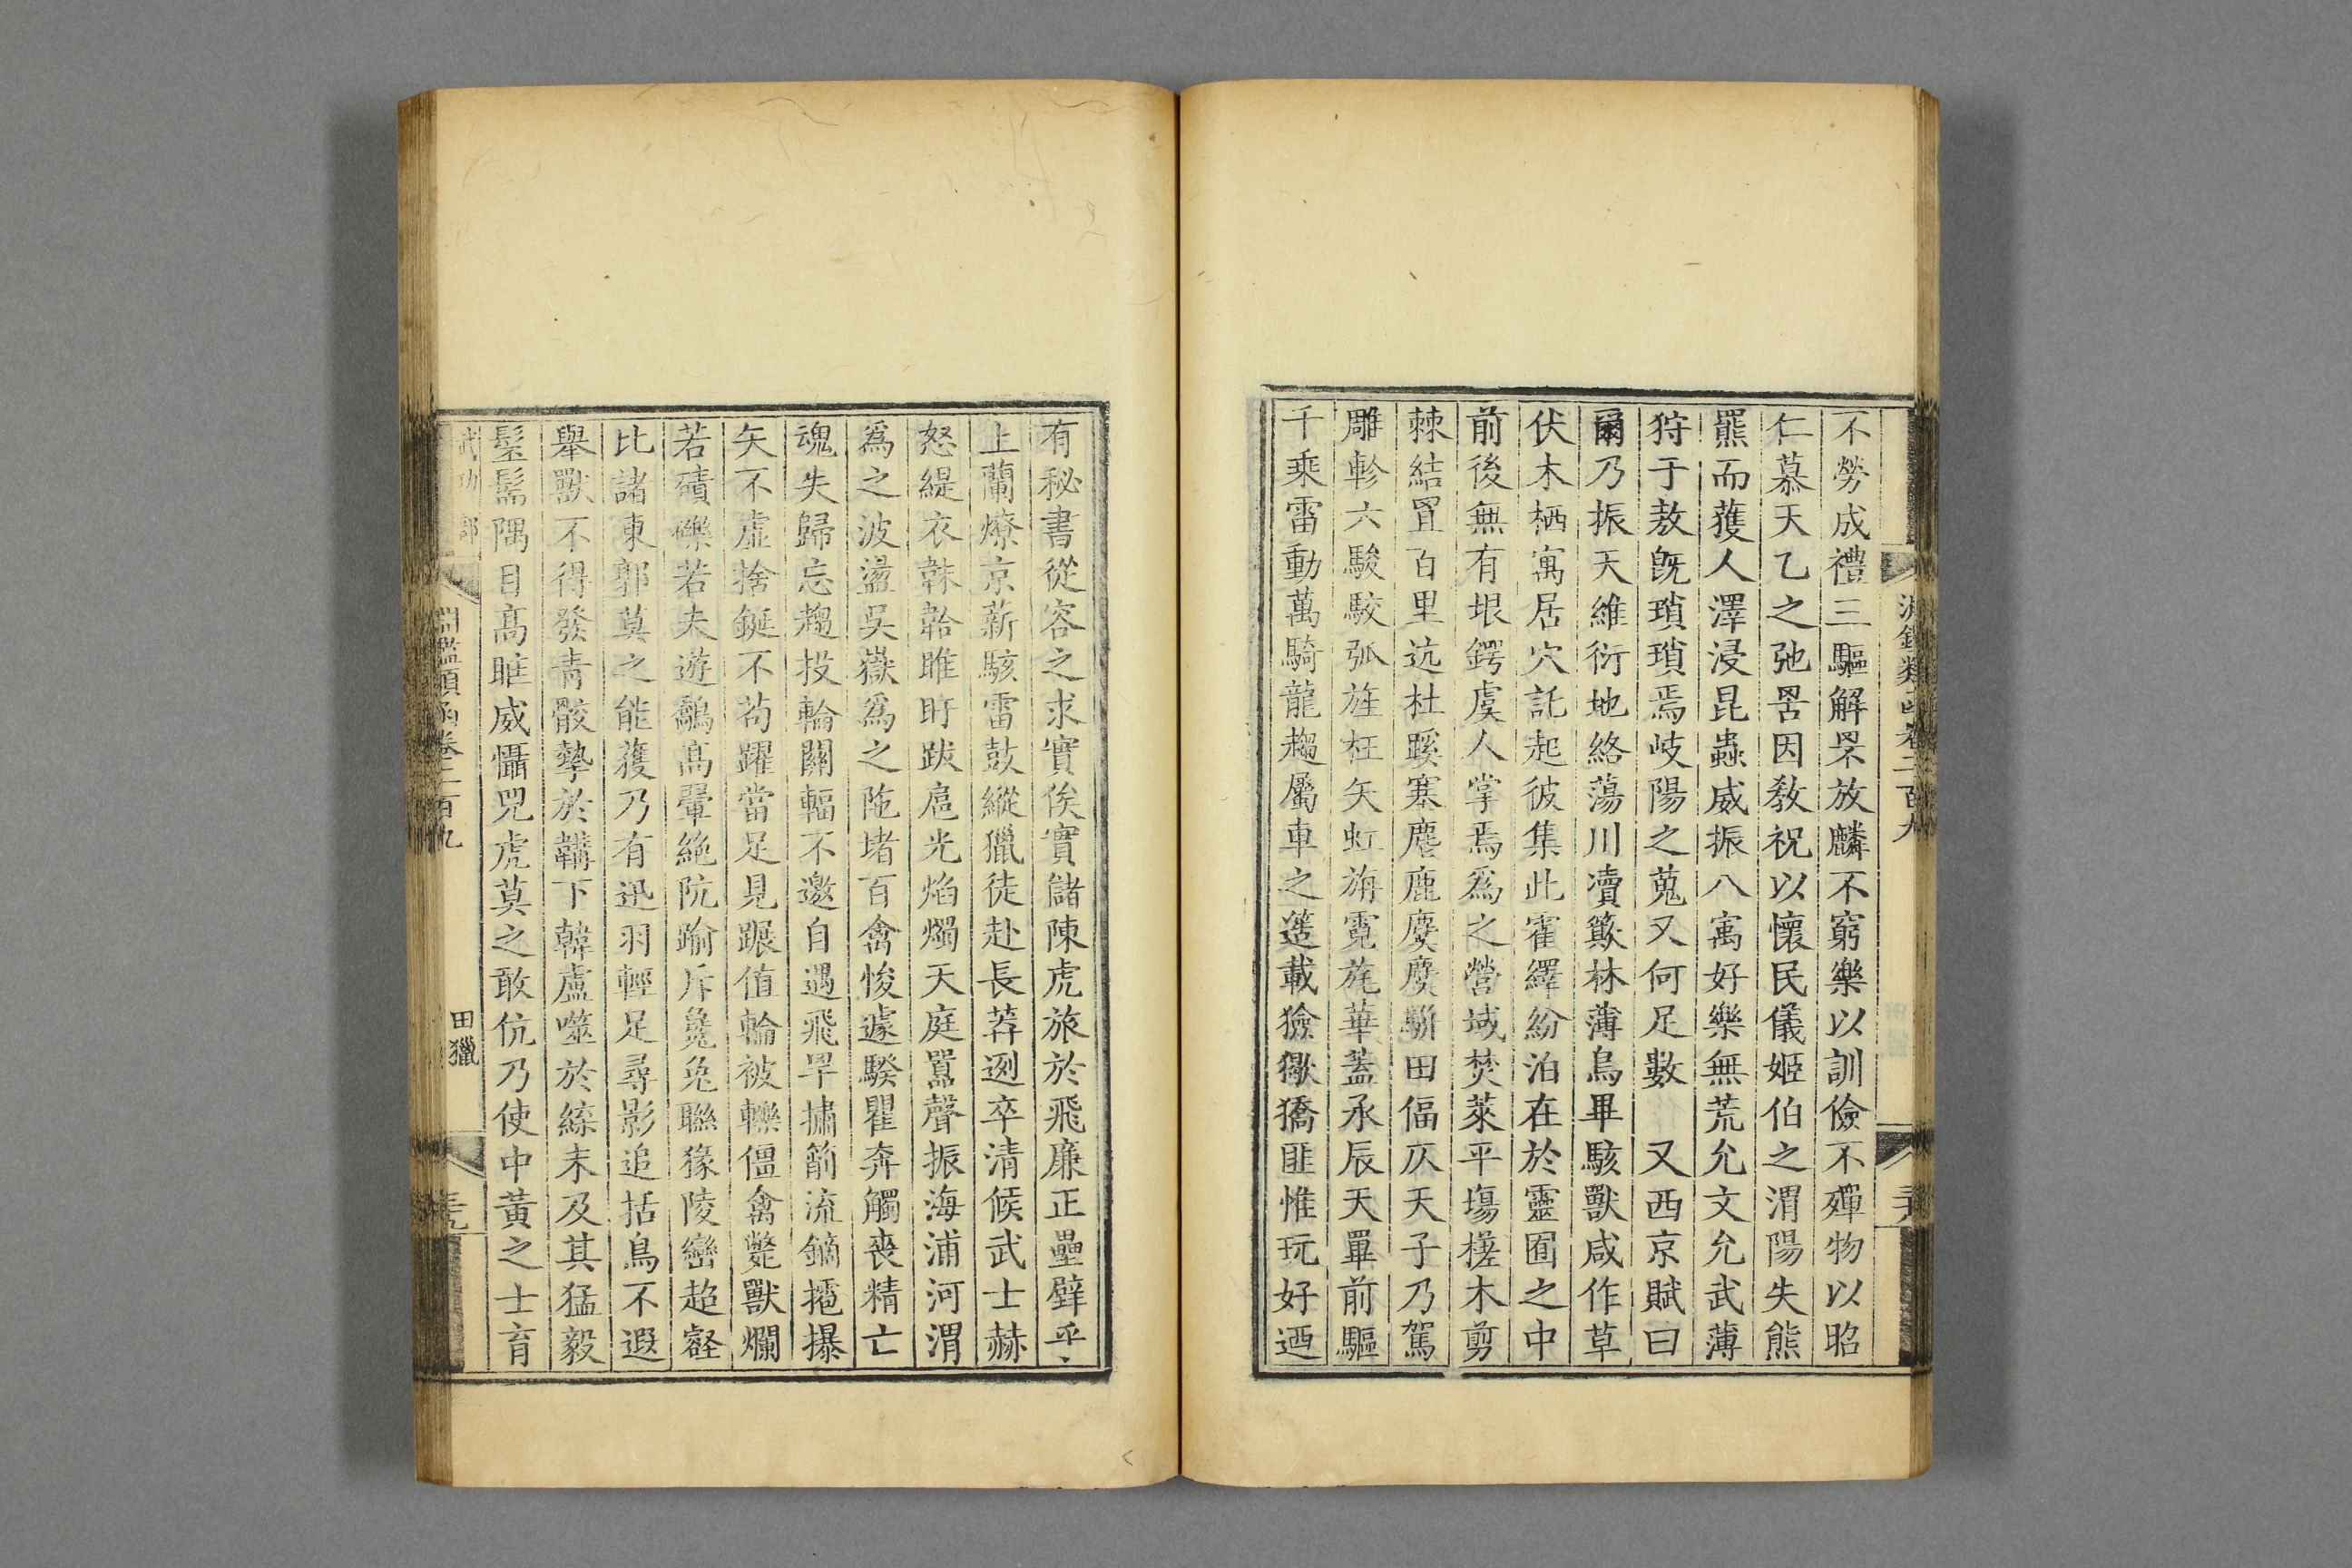 淵鑑類函卷二百九
不勞成禮三驅解罘放麟不窮樂以訓儉不殫物以昭
仁慕天乙之弛罟因敎祝以懷民儀姬伯之渭陽失熊
羆而獲人澤浸昆蟲威振八寓好樂無荒允文允武薄
狩于敖旣瑣瑣焉岐陽之蒐又何足數 又西京賦曰
爾乃振天維衍地絡蕩川瀆簸林薄鳥畢駭獸咸作草
伏木栖寓居穴託起彼集此霍繹紛泊在於靈囿之中
前後無有垠鍔虞人掌焉爲之營域焚萊平塲槎木剪
棘結罝百里迒杜蹊塞麀鹿麌麌騈田偪仄天子乃駕
雕軫六駿駮弧旌枉矢虹旃霓旄華蓋承辰天畢前驅
千乘雷動萬騎龍趨屬車之簉載獫猲獢匪惟玩好迺
有秘書從容之求實俟實儲陳虎旅於飛廉正壘壁乎
上蘭燎京薪駭雷鼓縱獵徒赴長莽迾卒清候武士赫
怒緹衣韎韐睢盱跋扈光焰燭天庭囂聲振海浦河渭
爲之波盪吳嶽爲之陁堵百禽㥄遽騤瞿奔觸喪精亡
魂失歸忘趨投輪關輻不邀自遇飛罕潚箾流鏑㩧㩧
矢不虛捨鋋不苟躍當足見蹍值輪被轢僵禽斃獸爛
若磧礫若夫遊鷮高翬絶阬踰斥毚兔聯猭陵巒超壑
比諸東郭莫之能獲乃有迅羽輕足尋影追括鳥不遐
舉獸不得發青骹摯於鞲下韓盧噬於緤末及其猛毅
髬髵隅目高眶威懾兕虎莫之敢伉乃使中黃之士育
武功部 淵鑑類函卷二百九 田獵